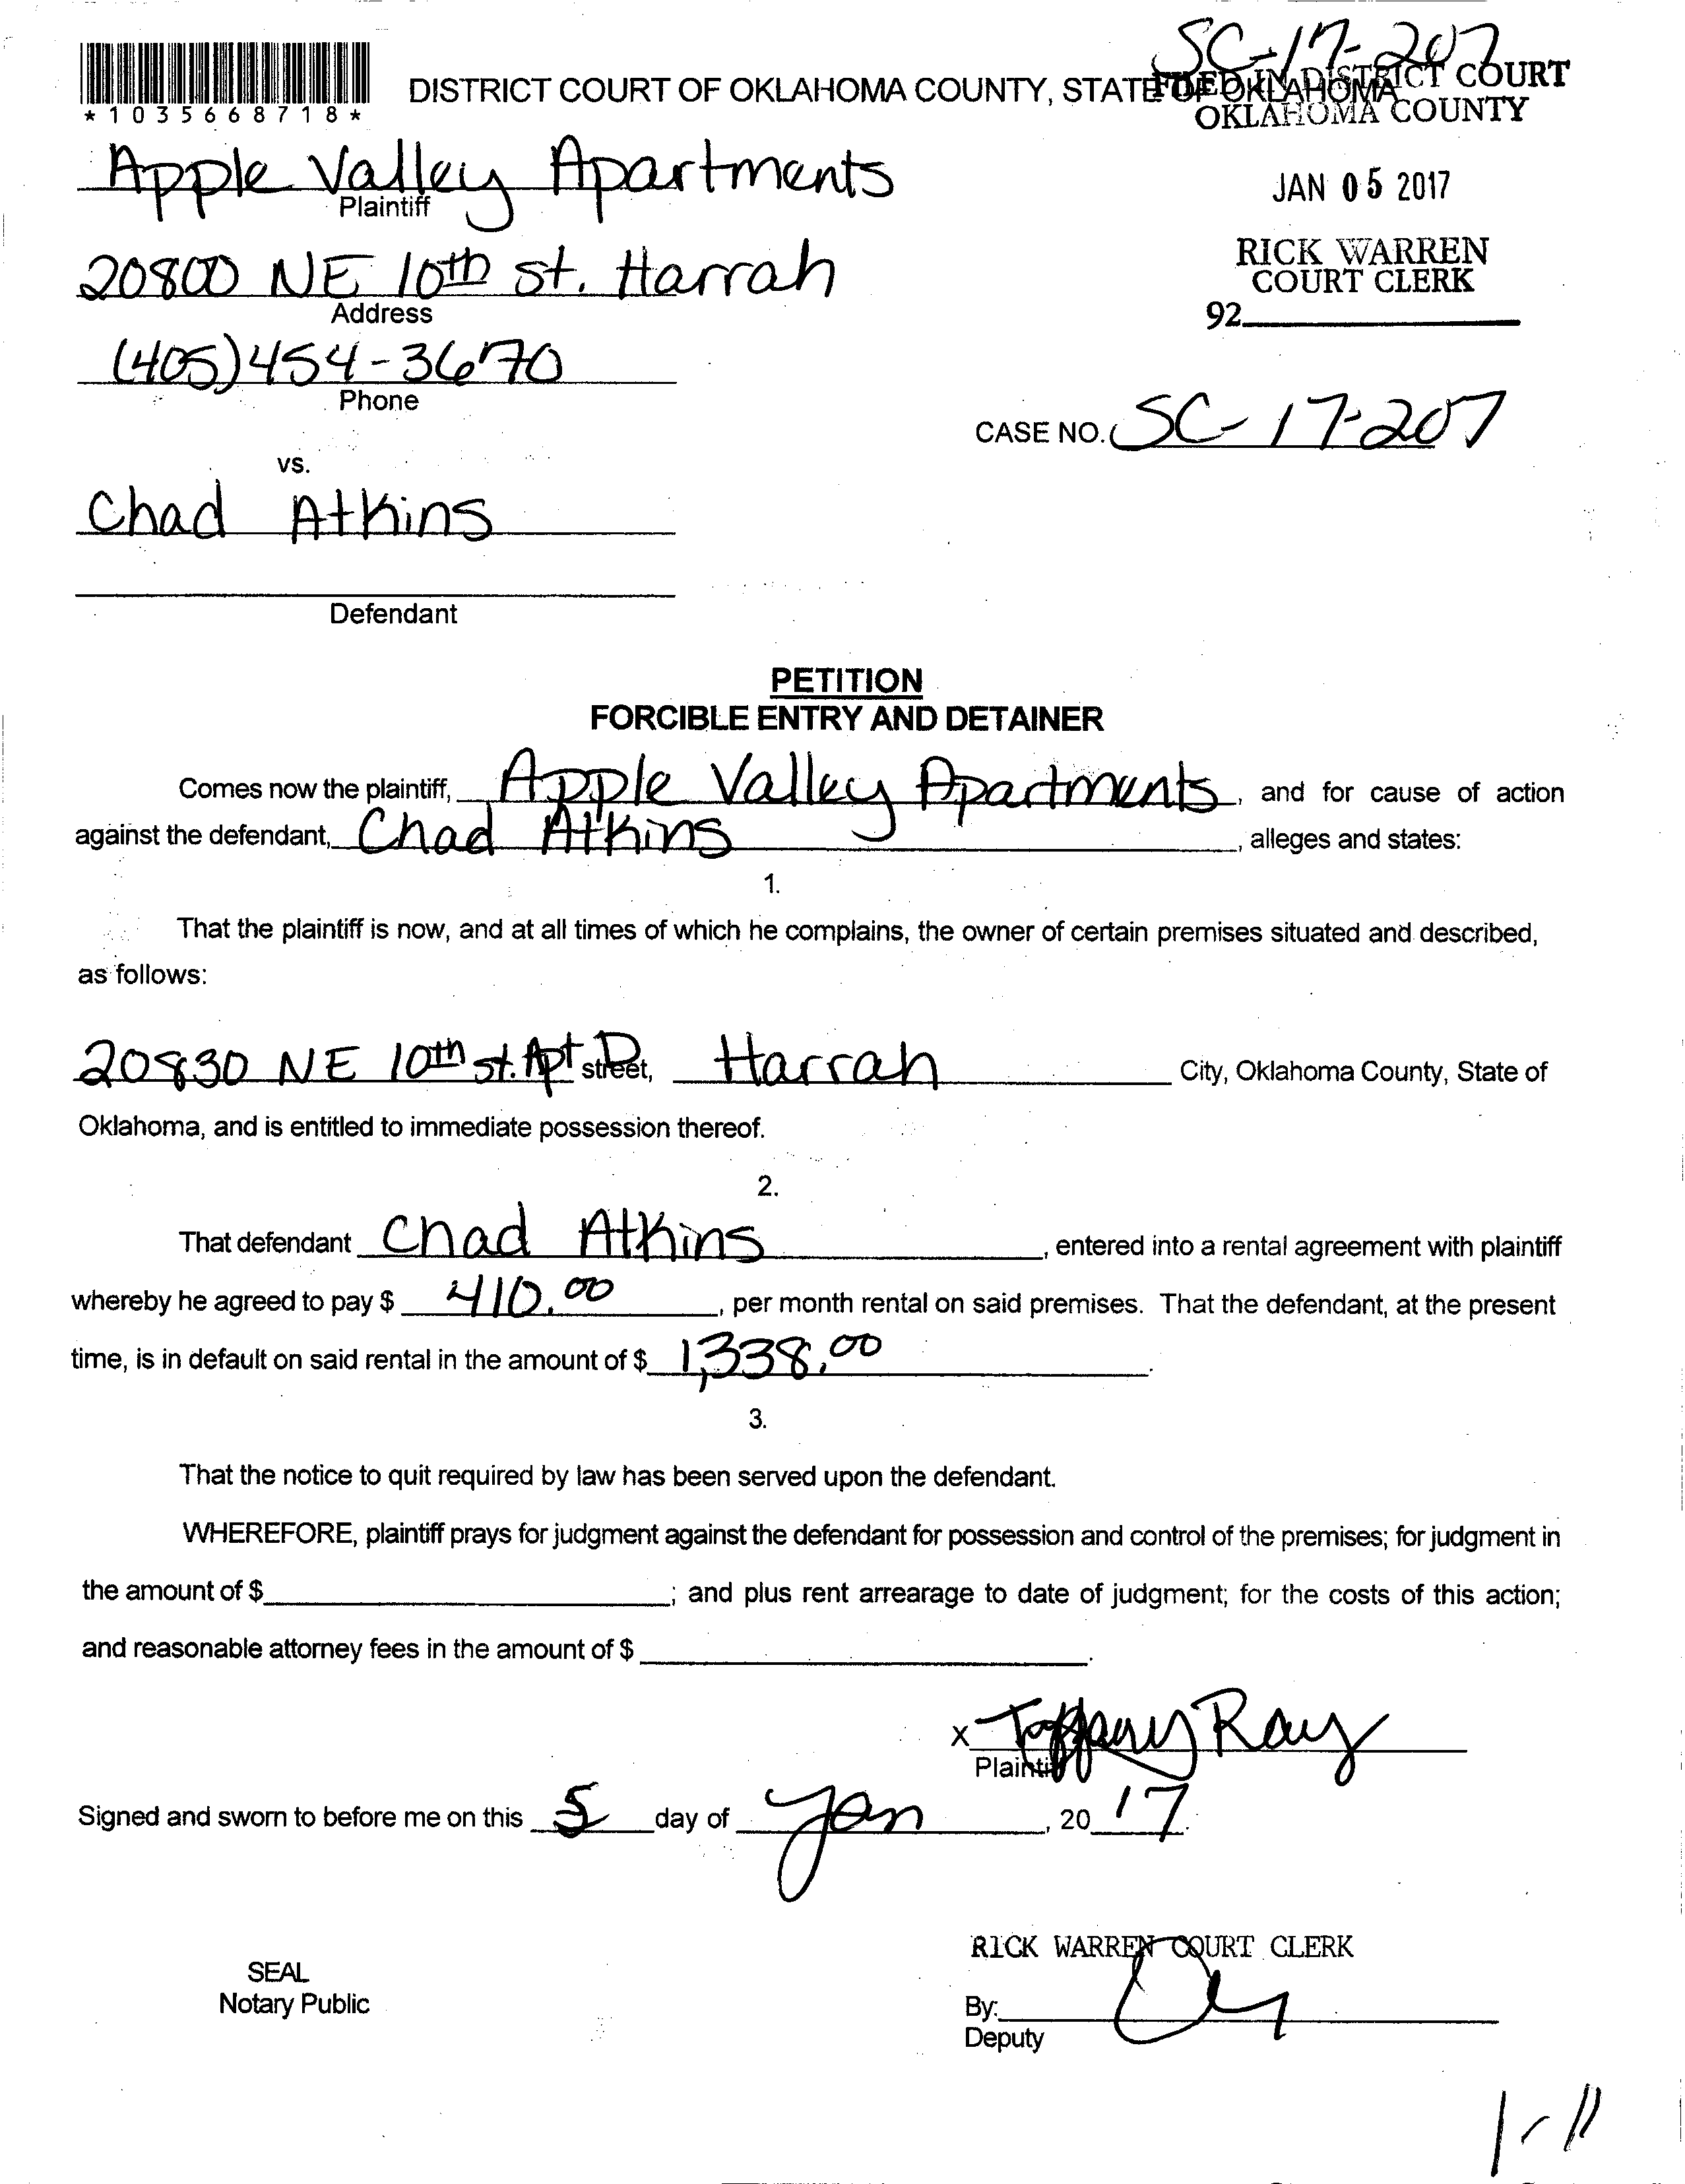 SC-17-207
DISTRICT COURT OF OKLAHOMA COUNTY, STATE OF OKLAHOMA
FILED IN DISTRICT COURT
OKLAHOMA COUNTY
*1035668718*
Apple Valley Apartments
Plaintiff
JAN 05 2017
20800 NE 10th st. Harrah
Address
RICK WARREN
COURT CLERK
92
(405)454-3670
Phone
CASE NO. SC-17-207
vs.
Chad Atkins
Defendant
PETITION
FORCIBLE ENTRY AND DETAINER
Comes now the plaintiff, Apple Valley Apartments, and for cause of action
against the defendant, Chad Atkins, alleges and states:
1.
That the plaintiff is now, and at all times of which he complains, the owner of certain premises situated and described,
as follows:
20830 NE 10th st. Apt D street, Harrah City, Oklahoma County, State of
Oklahoma, and is entitled to immediate possession thereof.
2.
That defendant Chad Atkins, entered into a rental agreement with plaintiff
whereby he agreed to pay $ 410.00, per month rental on said premises. That the defendant, at the present
time, is in default on said rental in the amount of $ 1,338.00.
3.
That the notice to quit required by law has been served upon the defendant.
WHEREFORE, plaintiff prays for judgment against the defendant for possession and control of the premises; for judgment in
the amount of $ ; and plus rent arrearage to date of judgment; for the costs of this action;
and reasonable attorney fees in the amount of $ .
x Tiffany Ray
Plaintiff
Signed and sworn to before me on this 5 day of Jan, 20 17.
RICK WARREN COURT CLERK
SEAL
Notary Public
By:
Deputy
1-11